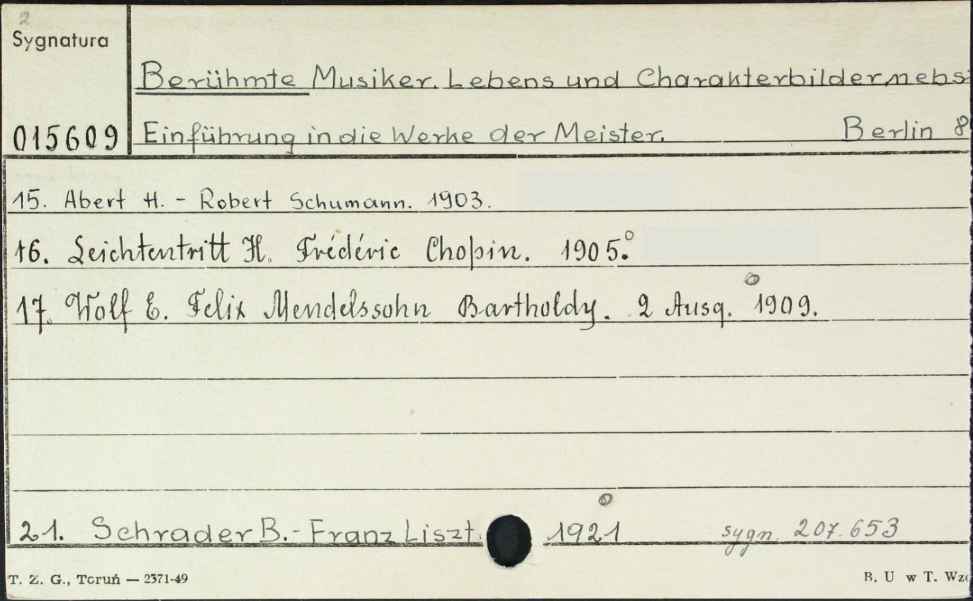 2
Sygnatura
Berühmte Musiker. Lebens und Charakterbilder nebs
015609 Einführung in die Werke der Meister. Berlin 8
15. Abert H. - Robert Schumann. 1903.
16. Leichtentritt H. Frédéric Chopin. 1905.
17. Wolf E. Felix Mendelssohn Bartholdy. 2 Ausg. 1909.
21. Schrader B. - Franz Liszt. 1921 sygn 207.653
T. Z. G., Toruń — 2371-49 B. U w T. Wzo